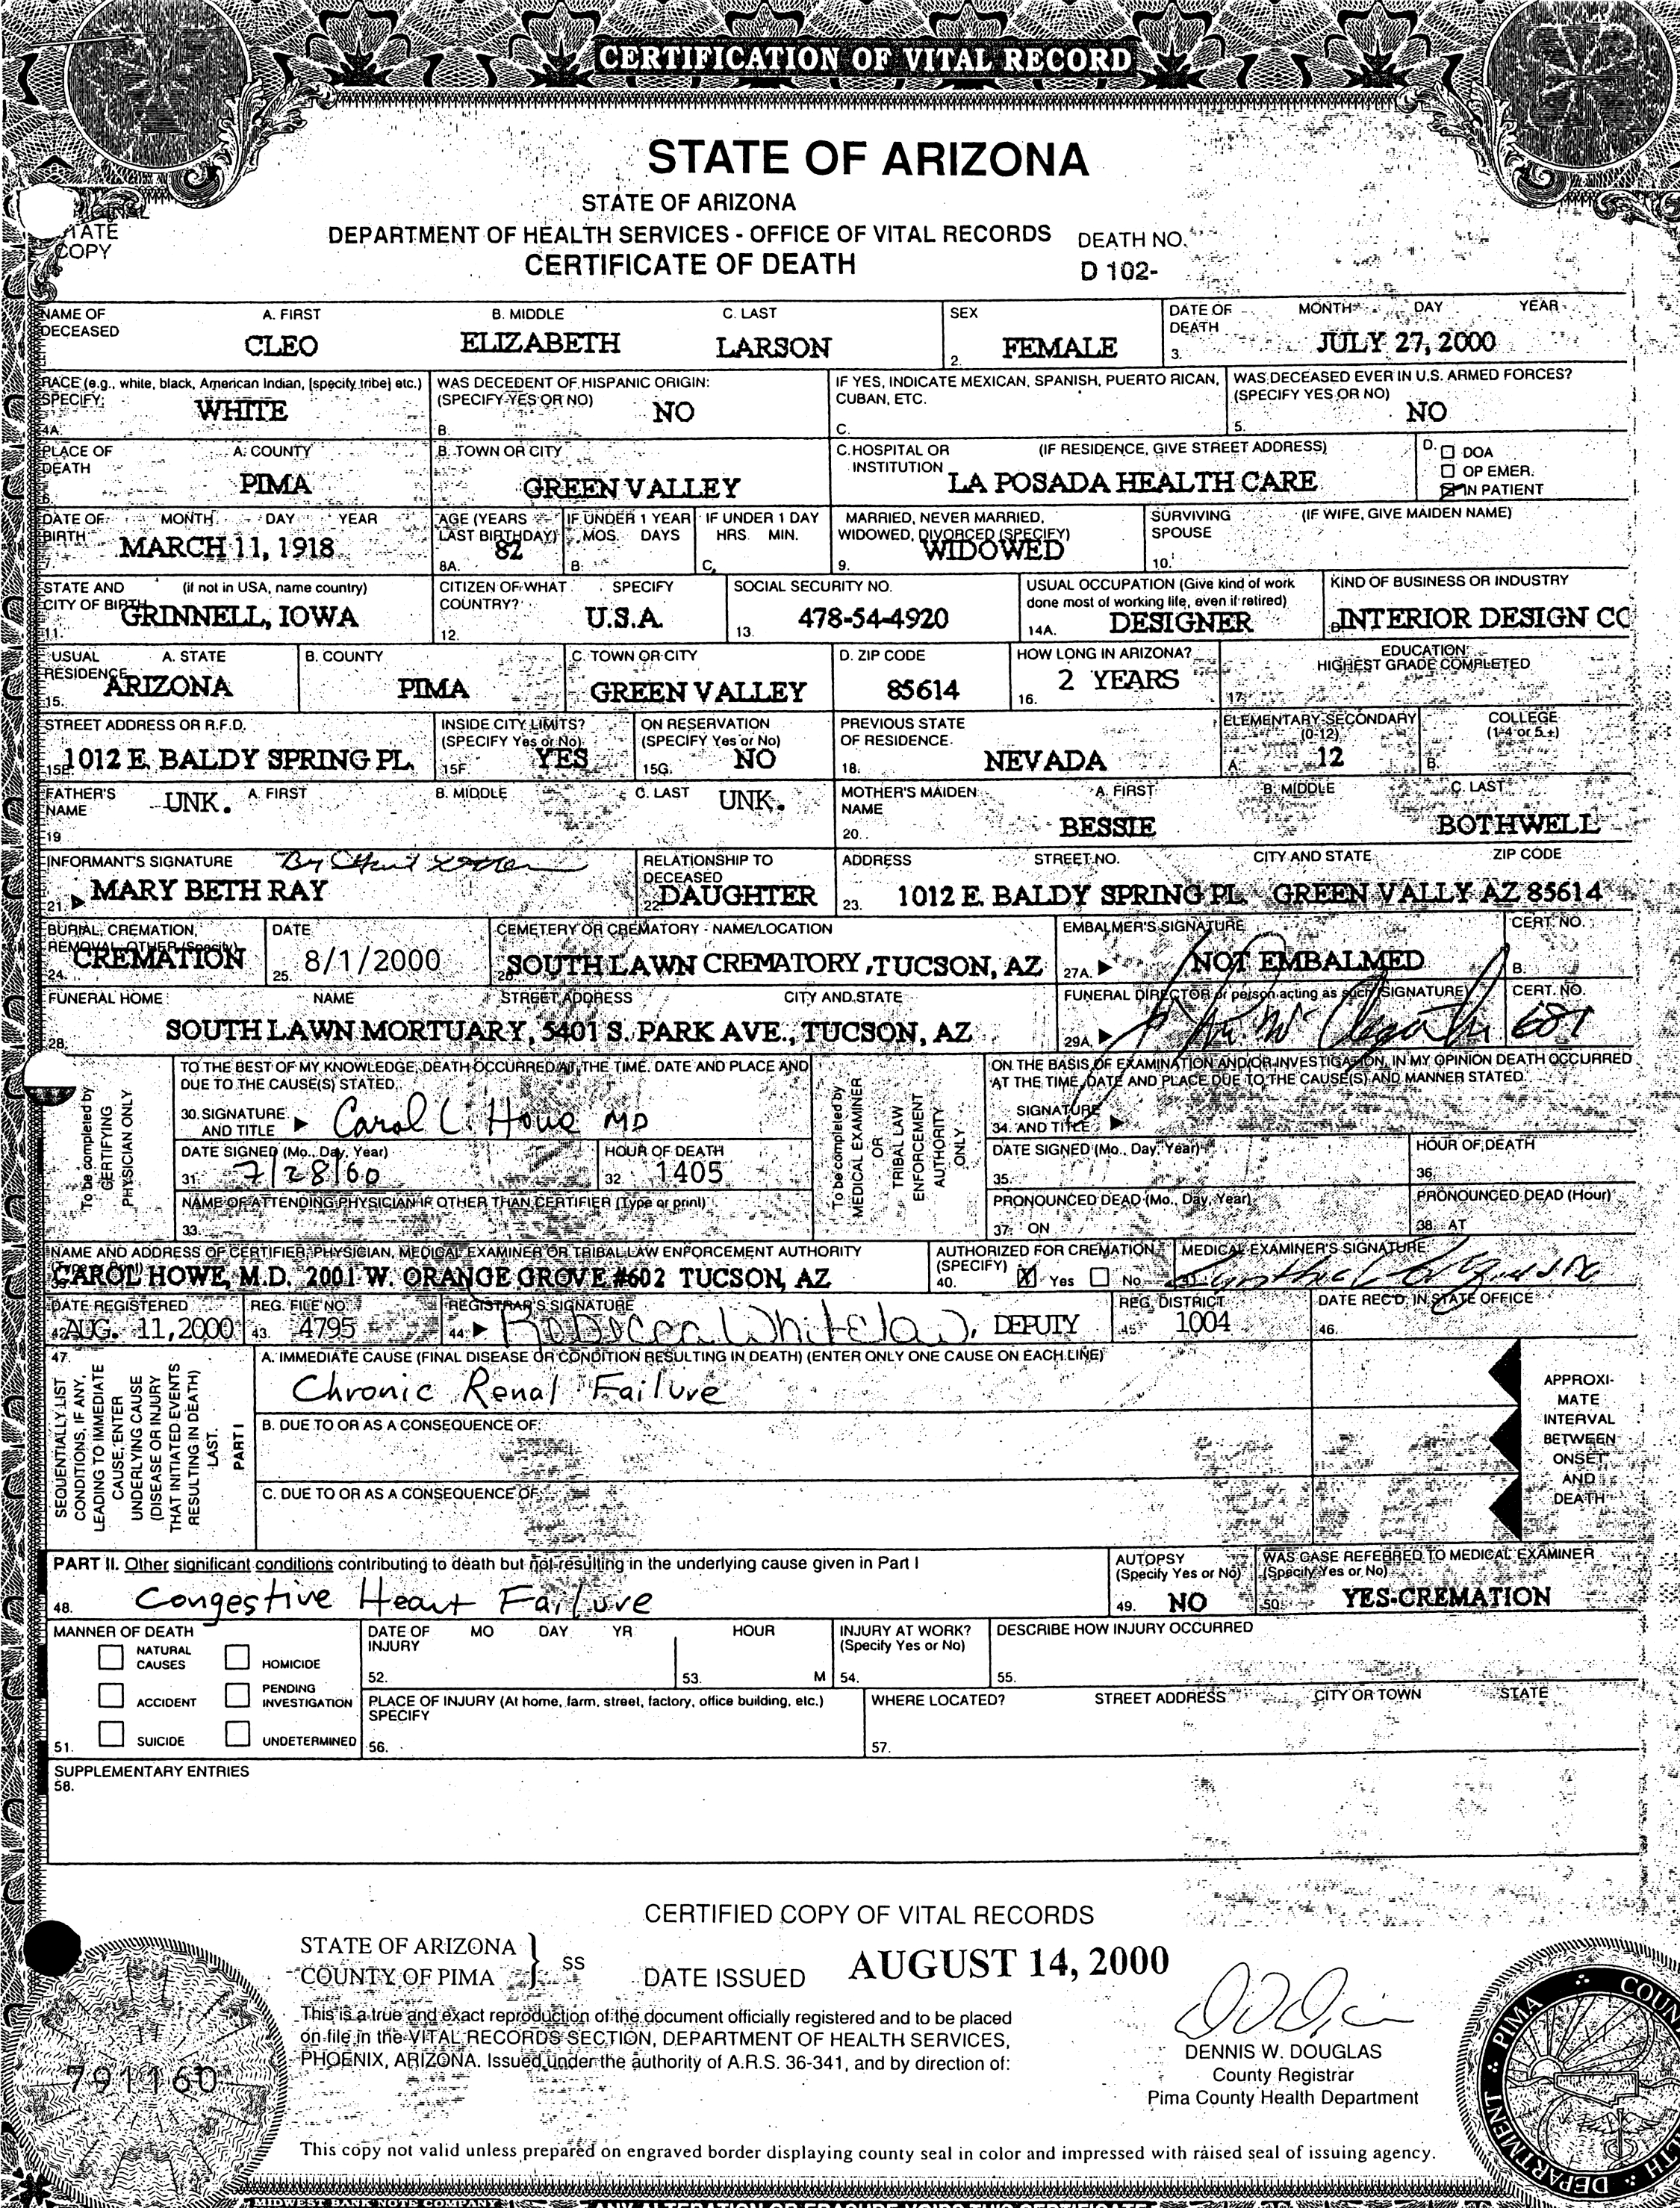 CERTIFICATION OF VITAL RECORD
STATE OF ARIZONA
STATE OF ARIZONA
DEPARTMENT OF HEALTH SERVICES - OFFICE OF VITAL RECORDS
CERTIFICATE OF DEATH
DEATH NO.
D 102-
STATE
COPY
NAME OF DECEASED A. FIRST B. MIDDLE C. LAST SEX DATE OF DEATH MONTH DAY YEAR
CLEO ELIZABETH LARSON 2. FEMALE 3. JULY 27, 2000
RACE (e.g., white, black, American Indian, [specify tribe] etc.) SPECIFY: WAS DECEDENT OF HISPANIC ORIGIN: (SPECIFY YES OR NO) IF YES, INDICATE MEXICAN, SPANISH, PUERTO RICAN, CUBAN, ETC. WAS DECEASED EVER IN U.S. ARMED FORCES? (SPECIFY YES OR NO)
4A. WHITE B. NO C. 5. NO
PLACE OF DEATH A. COUNTY B. TOWN OR CITY C. HOSPITAL OR INSTITUTION (IF RESIDENCE, GIVE STREET ADDRESS) D. DOA OP EMER. IN PATIENT
6. PIMA GREEN VALLEY LA POSADA HEALTH CARE
DATE OF BIRTH MONTH DAY YEAR AGE (YEARS LAST BIRTHDAY) IF UNDER 1 YEAR MOS. DAYS IF UNDER 1 DAY HRS. MIN. MARRIED, NEVER MARRIED, WIDOWED, DIVORCED (SPECIFY) SURVIVING SPOUSE (IF WIFE, GIVE MAIDEN NAME)
7. MARCH 11, 1918 8A. 82 B. C. 9. WIDOWED 10.
STATE AND CITY OF BIRTH (if not in USA, name country) CITIZEN OF WHAT COUNTRY? SPECIFY SOCIAL SECURITY NO. USUAL OCCUPATION (Give kind of work done most of working life, even if retired) KIND OF BUSINESS OR INDUSTRY
11. GRINNELL, IOWA 12. U.S.A. 13. 478-54-4920 14A. DESIGNER B. INTERIOR DESIGN CO
USUAL RESIDENCE A. STATE B. COUNTY C. TOWN OR CITY D. ZIP CODE HOW LONG IN ARIZONA? EDUCATION HIGHEST GRADE COMPLETED
15. ARIZONA PIMA GREEN VALLEY 85614 16. 2 YEARS 17.
STREET ADDRESS OR R.F.D. INSIDE CITY LIMITS? (SPECIFY Yes or No) ON RESERVATION (SPECIFY Yes or No) PREVIOUS STATE OF RESIDENCE ELEMENTARY-SECONDARY (0-12) COLLEGE (1-4 or 5+)
15E. 1012 E. BALDY SPRING PL. 15F. YES 15G. NO 18. NEVADA A. 12 B.
FATHER'S NAME A. FIRST B. MIDDLE C. LAST MOTHER'S MAIDEN NAME A. FIRST B. MIDDLE C. LAST
19 UNK. UNK. 20. BESSIE BOTHWELL
INFORMANT'S SIGNATURE By RELATIONSHIP TO DECEASED ADDRESS STREET NO. CITY AND STATE ZIP CODE
21. MARY BETH RAY 22. DAUGHTER 23. 1012 E. BALDY SPRING PL. GREEN VALLY AZ 85614
BURIAL, CREMATION, REMOVAL, OTHER (Specify) DATE CEMETERY OR CREMATORY - NAME/LOCATION EMBALMER'S SIGNATURE CERT. NO.
24. CREMATION 25. 8/1/2000 26. SOUTH LAWN CREMATORY, TUCSON, AZ 27A. NOT EMBALMED B.
FUNERAL HOME NAME STREET ADDRESS CITY AND STATE FUNERAL DIRECTOR or person acting as such (SIGNATURE) CERT. NO.
28. SOUTH LAWN MORTUARY, 5401 S. PARK AVE., TUCSON, AZ 29A.
To be completed by CERTIFYING PHYSICIAN ONLY
TO THE BEST OF MY KNOWLEDGE, DEATH OCCURRED AT THE TIME, DATE AND PLACE AND DUE TO THE CAUSE(S) STATED.
30. SIGNATURE AND TITLE Carol L. Howe MD
DATE SIGNED (Mo., Day, Year) HOUR OF DEATH
31. 7/28/00 32. 1405
NAME OF ATTENDING PHYSICIAN IF OTHER THAN CERTIFIER (Type or print)
33.
To be completed by MEDICAL EXAMINER OR TRIBAL LAW ENFORCEMENT AUTHORITY ONLY
ON THE BASIS OF EXAMINATION AND/OR INVESTIGATION, IN MY OPINION DEATH OCCURRED AT THE TIME, DATE AND PLACE DUE TO THE CAUSE(S) AND MANNER STATED.
34. SIGNATURE AND TITLE
DATE SIGNED (Mo., Day, Year) HOUR OF DEATH
35. 36.
PRONOUNCED DEAD (Mo., Day, Year) PRONOUNCED DEAD (Hour)
37. ON 38. AT
NAME AND ADDRESS OF CERTIFIER, PHYSICIAN, MEDICAL EXAMINER OR TRIBAL LAW ENFORCEMENT AUTHORITY AUTHORIZED FOR CREMATION (SPECIFY) MEDICAL EXAMINER'S SIGNATURE
CAROL HOWE, M.D. 2001 W. ORANGE GROVE #602 TUCSON, AZ 40. X Yes No
DATE REGISTERED REG. FILE NO. REGISTRAR'S SIGNATURE REG. DISTRICT DATE REC'D. IN STATE OFFICE
42. AUG. 11, 2000 43. 4795 44. Rebecca Whitelaw, DEPUTY 45. 1004 46.
47. SEQUENTIALLY LIST CONDITIONS, IF ANY, LEADING TO IMMEDIATE CAUSE, ENTER UNDERLYING CAUSE (DISEASE OR INJURY THAT INITIATED EVENTS RESULTING IN DEATH) LAST. PART I
A. IMMEDIATE CAUSE (FINAL DISEASE OR CONDITION RESULTING IN DEATH) (ENTER ONLY ONE CAUSE ON EACH LINE)
Chronic Renal Failure
B. DUE TO OR AS A CONSEQUENCE OF:
C. DUE TO OR AS A CONSEQUENCE OF
APPROXI-
MATE
INTERVAL
BETWEEN
ONSET
AND
DEATH
PART II. Other significant conditions contributing to death but not resulting in the underlying cause given in Part I AUTOPSY (Specify Yes or No) WAS CASE REFERRED TO MEDICAL EXAMINER (Specify Yes or No)
48. Congestive Heart Failure 49. NO 50. YES-CREMATION
MANNER OF DEATH DATE OF INJURY MO DAY YR HOUR INJURY AT WORK? (Specify Yes or No) DESCRIBE HOW INJURY OCCURRED
NATURAL CAUSES HOMICIDE 52. 53. M 54. 55.
ACCIDENT PENDING INVESTIGATION PLACE OF INJURY (At home, farm, street, factory, office building, etc.) SPECIFY WHERE LOCATED? STREET ADDRESS CITY OR TOWN STATE
51. SUICIDE UNDETERMINED 56. 57.
SUPPLEMENTARY ENTRIES
58.
CERTIFIED COPY OF VITAL RECORDS
STATE OF ARIZONA
COUNTY OF PIMA
SS
DATE ISSUED AUGUST 14, 2000
This is a true and exact reproduction of the document officially registered and to be placed
on file in the VITAL RECORDS SECTION, DEPARTMENT OF HEALTH SERVICES,
PHOENIX, ARIZONA. Issued under the authority of A.R.S. 36-341, and by direction of:
DENNIS W. DOUGLAS
County Registrar
Pima County Health Department
791160
PIMA COUN
DEPARTMENT
This copy not valid unless prepared on engraved border displaying county seal in color and impressed with raised seal of issuing agency.
MIDWEST BANK NOTE COMPANY